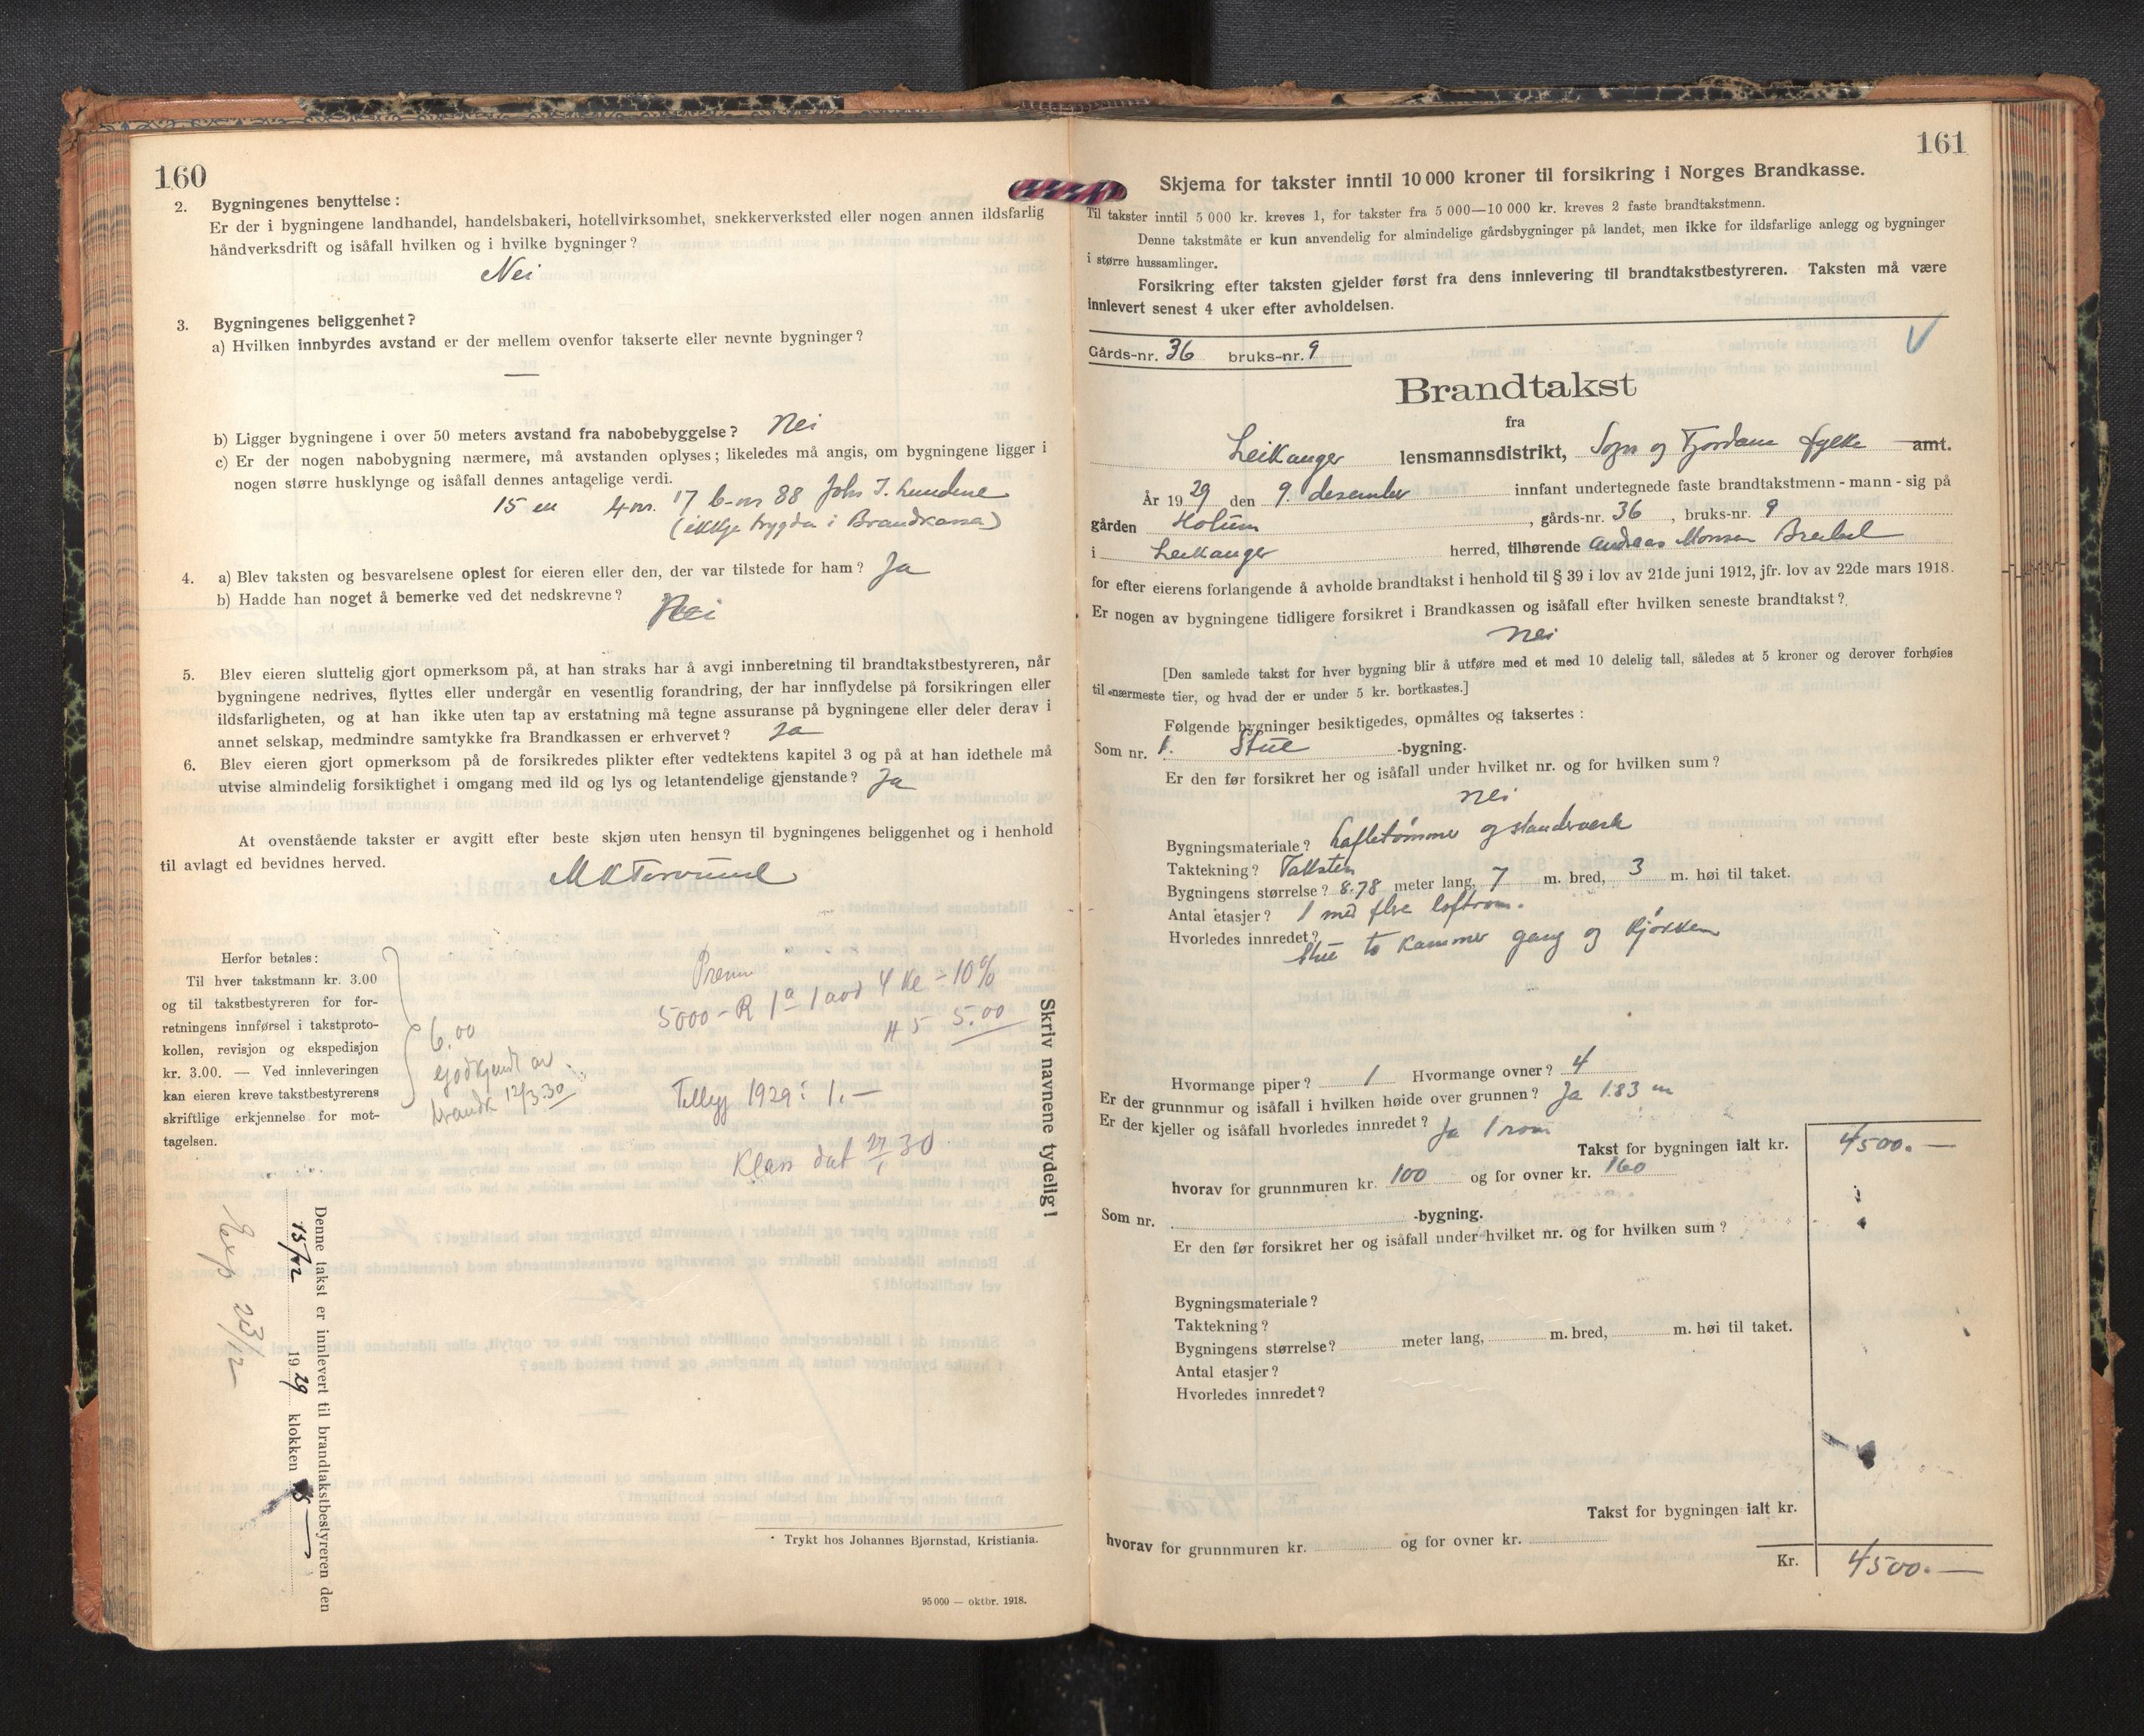 160
2. Bygningenes benyttelse:
Er der i bygningene landhandel, handelsbakeri, hotellvirksomhet, snekkerverksted eller nogen annen ildsfarlig
håndverksdrift og isåfall hvilken og i hvilke bygninger?
Nei
3. Bygningenes beliggenhet?
a) Hvilken innbyrdes avstand er der mellem ovenfor takserte eller nevnte bygninger?
—
b) Ligger bygningene i over 50 meters avstand fra nabobebyggelse? Nei
c) Er der nogen nabobygning nærmere, må avstanden oplyses; likeledes må angis, om bygningene ligger i
nogen større husklynge og isåfall dennes antagelige verdi.
15 m g-nr. 17 b-nr 88 Johs J. Lundene
(ikkje trygda i Brandkassa)
4. a) Blev taksten og besvarelsene oplest for eieren eller den, der var tilstede for ham? Ja
b) Hadde han noget å bemerke ved det nedskrevne?
Nei
5. Blev eieren sluttelig gjort opmerksom på, at han straks har å avgi innberetning til brandtakstbestyreren, når
bygningene nedrives, flyttes eller undergår en vesentlig forandring, der har innflydelse på forsikringen eller
ildsfarligheten, og at han ikke uten tap av erstatning må tegne assuranse på bygningene eller deler derav i
annet selskap, medmindre samtykke fra Brandkassen er erhvervet? Ja
6. Blev eieren gjort opmerksom på de forsikredes plikter efter vedtektens kapitel 3 og på at han idethele må
utvise almindelig forsiktighet i omgang med ild og lys og letantendelige gjenstande? Ja
At ovenstående takster er avgitt efter beste skjøn uten hensyn til bygningenes beliggenhet og i henhold
til avlagt ed bevidnes herved.
Herfor betales:
Til hver takstmann kr. 3.00
og til takstbestyreren for for-
retningens innførsel i takstproto-
kollen, revisjon og ekspedisjon
kr. 3.00. — Ved innleveringen
kan eieren kreve takstbestyrerens
skriftlige erkjennelse for mot-
tagelsen.
6.00
godkjendt av
brandk 12/3.30
Premie
5000 - R 1a 1 4 Kl = 10%
5.00
Tillegg 1929: 1.—
Klass dat 30
Skriv navnene tydelig!
Denne takst er innlevert til brandtakstbestyreren den
15/12 1929 klokken
Exp 23/12
Trykt hos Johannes Bjørnstad, Kristiania.
95 000 — oktbr. 1918.
161
Skjema for takster inntil 10 000 kroner til forsikring i Norges Brandkasse.
Til takster inntil 5 000 kr. kreves 1, for takster fra 5 000—10 000 kr. kreves 2 faste brandtakstmenn.
Denne takstmåte er kun anvendelig for almindelige gårdsbygninger på landet, men ikke for ildsfarlige anlegg og bygninger
i større hussamlinger.
Forsikring efter taksten gjelder først fra dens innlevering til brandtakstbestyreren. Taksten må være
innlevert senest 4 uker efter avholdelsen.
Gårds-nr. 36 bruks-nr. 9
Brandtakst
fra
Leikanger lensmannsdistrikt, Sogn og Fjordane fylke amt.
År 1929 den 9. desember innfant undertegnede faste brandtakstmenn - mann - sig på
gården Holum, gårds-nr. 36, bruks-nr. 9
i Leikanger herred, tilhørende Andreas Monsen
for efter eierens forlangende å avholde brandtakst i henhold til § 39 i lov av 21de juni 1912, jfr. lov av 22de mars 1918.
Er nogen av bygningene tidligere forsikret i Brandkassen og isåfall efter hvilken seneste brandtakst?
Nei
[Den samlede takst for hver bygning blir å utføre med et med 10 delelig tall, således at 5 kroner og derover forhøies
til nærmeste tier, og hvad der er under 5 kr. bortkastes.]
Følgende bygninger besiktigedes, opmåltes og taksertes:
Som nr. 1. Stue -bygning.
Er den før forsikret her og isåfall under hvilket nr. og for hvilken sum?
Nei
Bygningsmateriale? Laftetømmer og standerverk
Taktekning? Taksten
Bygningens størrelse? 8.78 meter lang, 7 m. bred, 3 m. høi til taket.
Antal etasjer? 1 med flre loftrom.
Hvorledes innredet?
Stue to kammer gang og kjøkken
Hvormange piper? 1 Hvormange ovner? 4
Er der grunnmur og isåfall i hvilken høide over grunnen? Ja 1.83 m
Er der kjeller og isåfall hvorledes innredet? Ja 1 rom
Takst for bygningen ialt kr. 4500.—
hvorav for grunnmuren kr. 100 og for ovner kr. 160
Som nr. -bygning.
Er den før forsikret her og isåfall under hvilket nr. og for hvilken sum?
Bygningsmateriale?
Taktekning?
Bygningens størrelse? meter lang, m. bred, m. høi til taket.
Antal etasjer?
Hvorledes innredet?
Takst for bygningen ialt kr.
hvorav for grunnmuren kr. og for ovner kr.
Kr. 4500.—